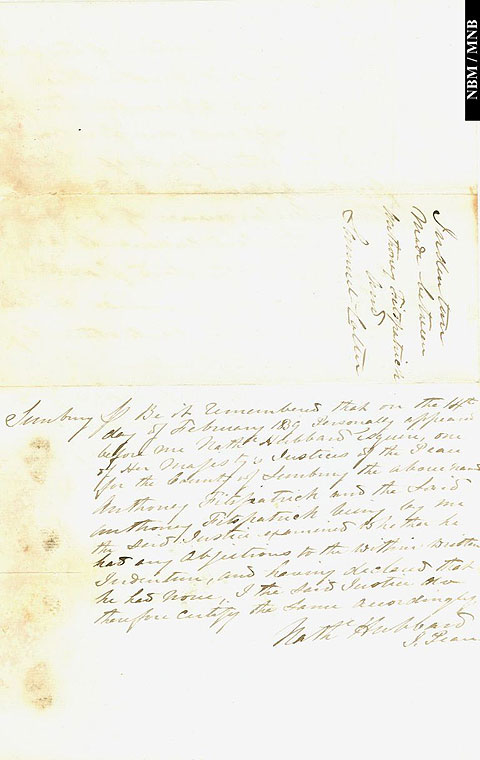 NBM / MNB
Indenture
Made between
Anthoney Fitzpatrick
and
Samuel
Sunbury Ss Be it remembered that on the 14th
day of February 1839 Personally appeared
before me Nathl Hubbard Esquire, one
of Her Majesty's Justices of the Peace
for the County of Sunbury the above named
Anthoney Fitzpatrick and the Said
Anthoney Fitzpatrick being by me
the Said Justice examined Whether he
had any Objections to the Within Written
Indenture, and having declared that
he had None, I the Said Justice do
therefore Certify the Same accordingly
Nathl Hubbard
J. Peace